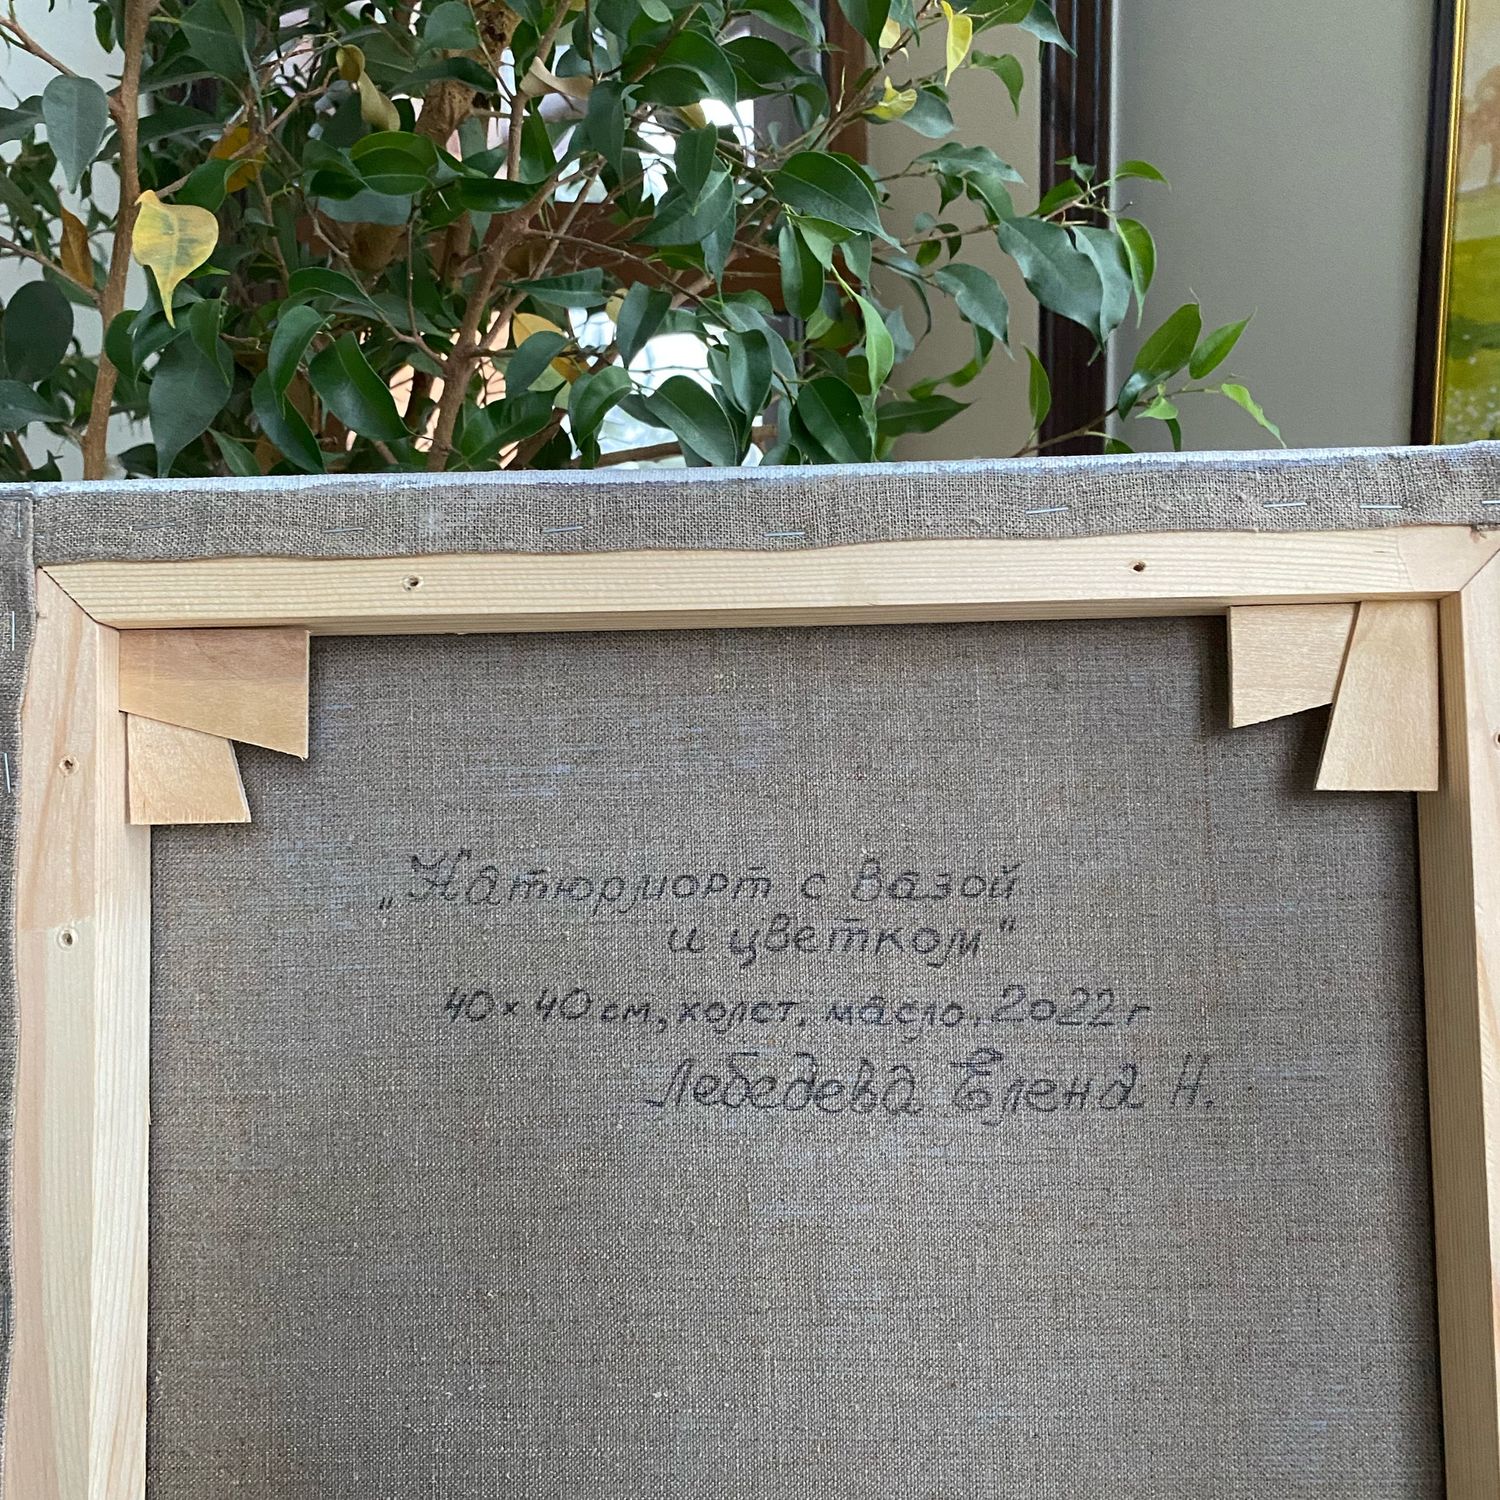 „Натюрморт с вазой
и цветком"
40х40см, холст, масло. 2022г
Лебедева Елена Н.